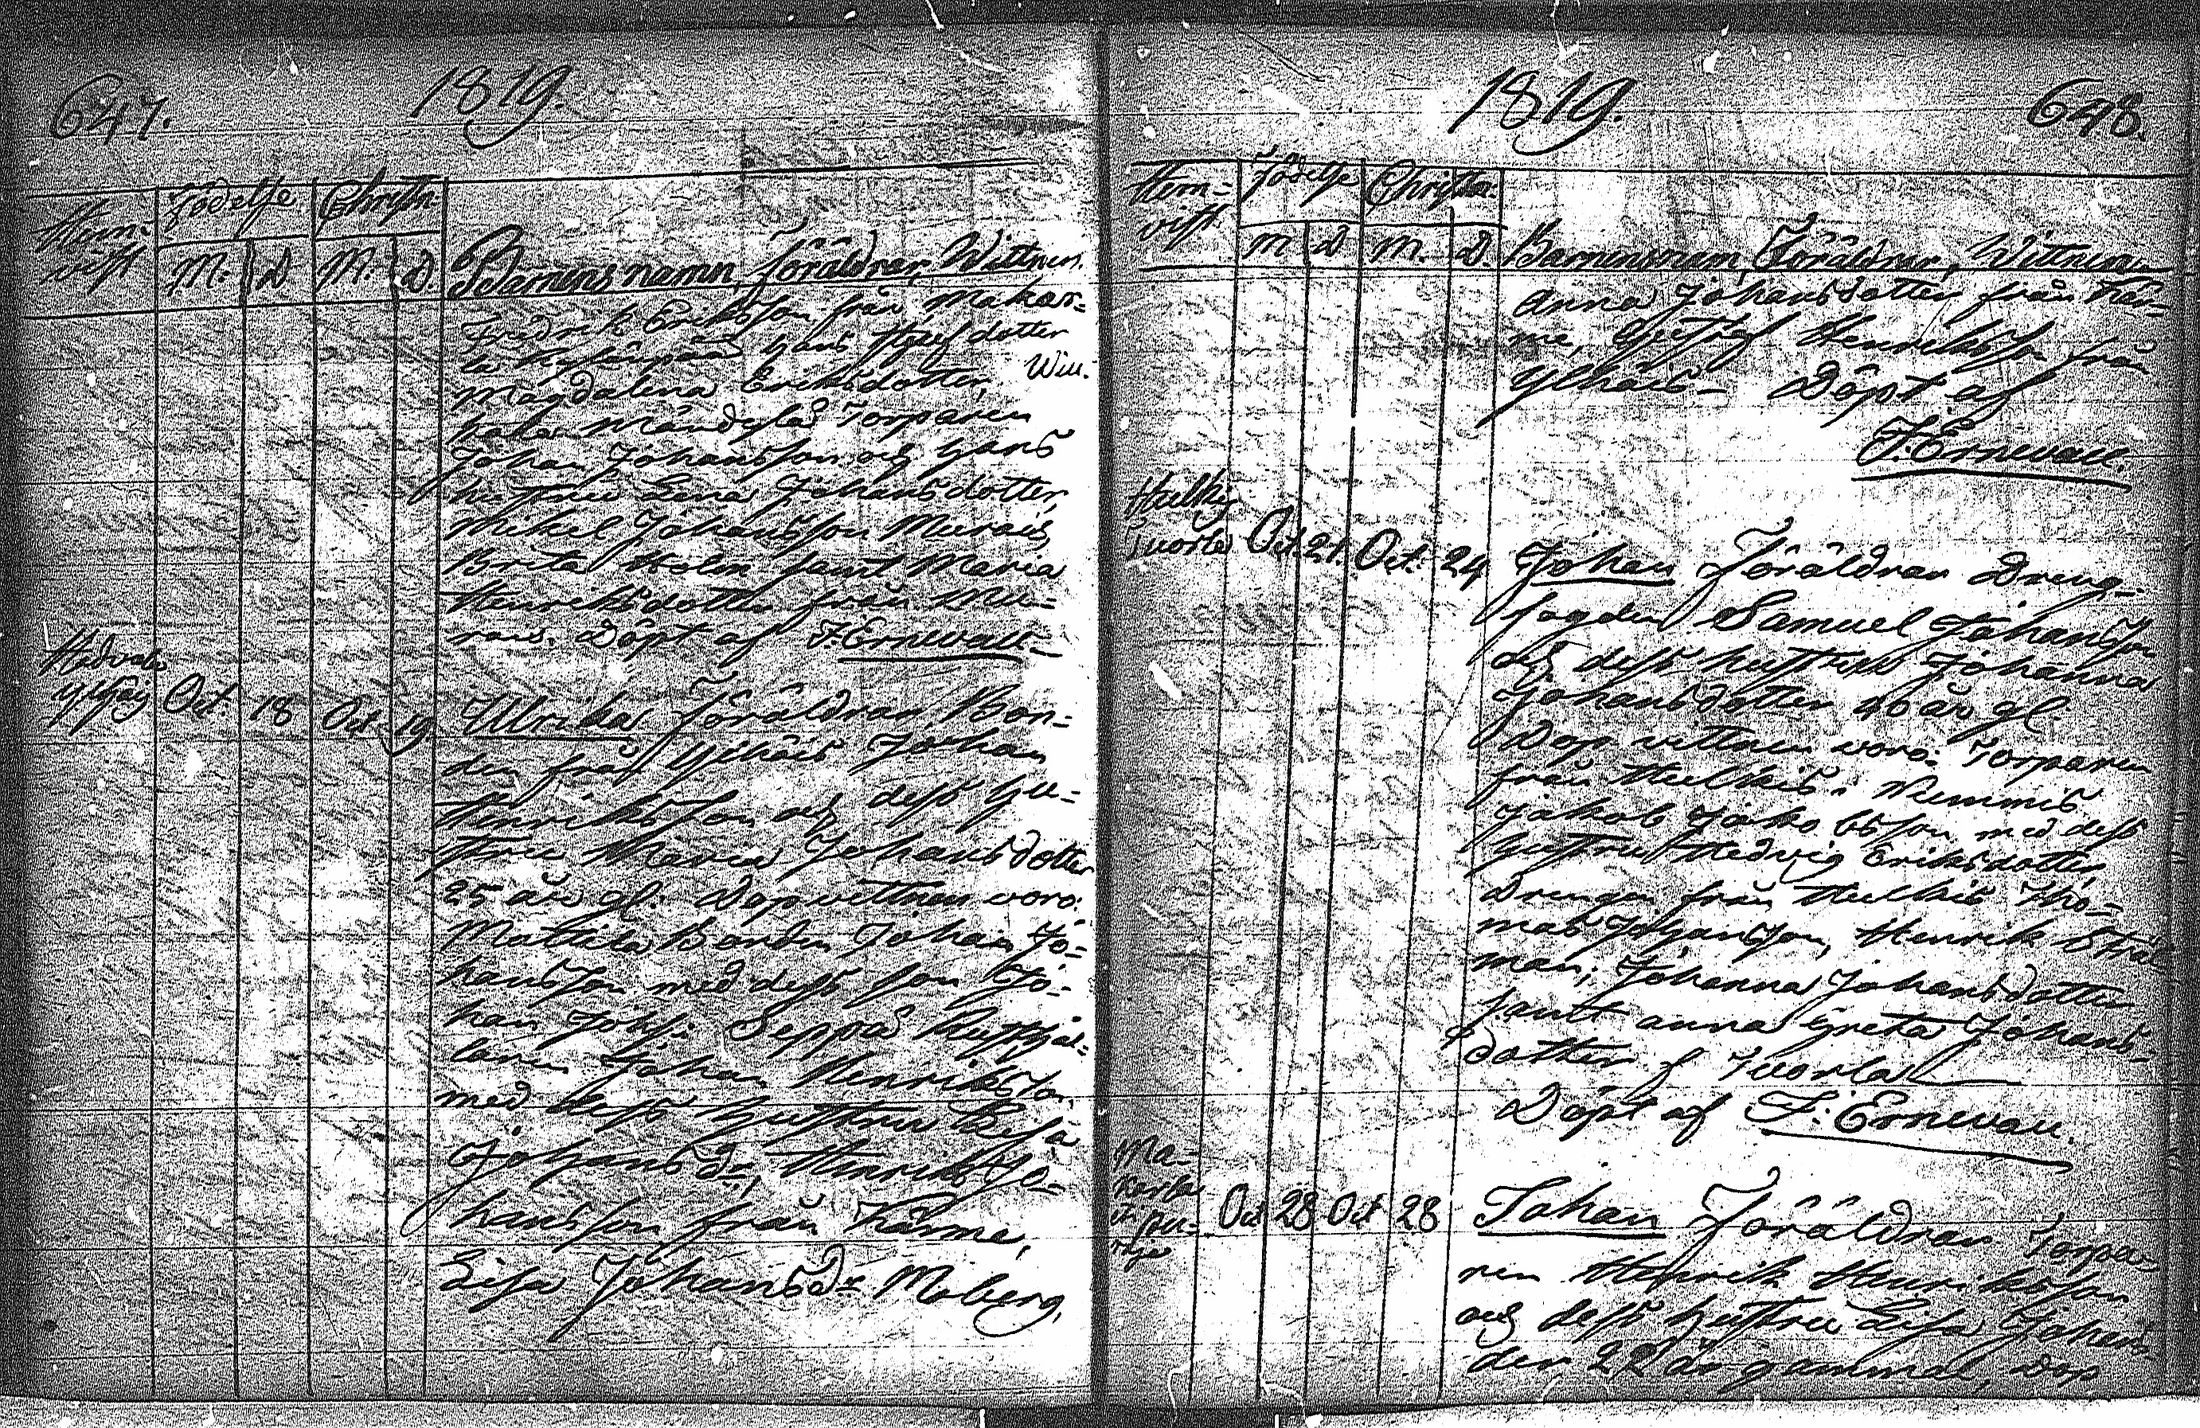 647.
1819.
Hem-
vist
Födelse
Christn.
M: D M: D.
Barnens namn, Föräldrar, Wittnen.
Fredrik Eriksson från Makar-
la hans dotter
Magdalena Eriksdotter,
Torparen
Johan Johansson och hans
hustru Lena Johansdotter,
Mikel Johansson Murais
Brita Holm samt Maria
Henriksdotter från Mu-
rais. Döpt af F. Ernevall
Hedvala
Oct. 18 Oct. 19
Ulrika Föräldrar, Bon-
den från Ylhäis Johan
Henriksson och dess hu-
stru Maria Johansdotter
25 år gl. Dopvittnen voro:
Mattila Bonden Johan Jo-
hansson med dess son Jo-
han Johs: Seppä Rusthål-
laren Johan Henriksson
med dess hustru Lisa
Johansdr, Henrik Jo-
hansson från Kärme,
Lisa Johansdr Moberg,
1819.
648.
Hem-
vist
Födelse
Christn.
M D M. D.
Barnensnam, Föräldrar, Wittnen
Anna Johansdotter från Kär-
me, Gustaf Henriksson från
Ylhäis- Döpt af
F. Ernevall.
Tuorla Oct. 21. Oct. 24
Johan Föräldrar Dreng-
fogden Samuel Johansson
och dess hustru Johanna
Johansdotter 46 år gl.
Dop vittnen voro: Torparen
från Hulkis
Jakob Jakobsson med dess
hustru Hedvig Eriksdotter,
Drengen från Hulkis Tho-
mas Johansson, Henrik Strål-
man, Johanna Johansdotter
samt Anna Greta Johans-
dotter f Tuorla
Döpt af F: Ernevall.
Ma-
karla
Oct 28 Oct 28
Johan Föräldrar Torpa-
ren Henrik Henriksson
och dess hustru Lisa Johans-
der 22 år gammal, Dop